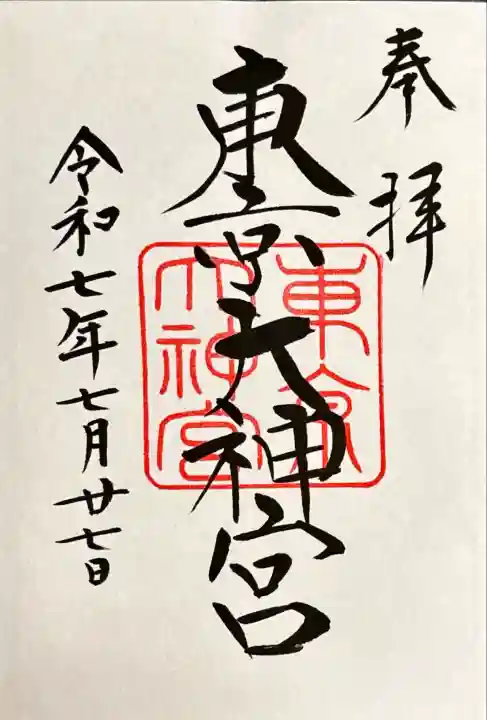 奉拝
東京大神宮
東京
大神宮
令和七年七月廿七日